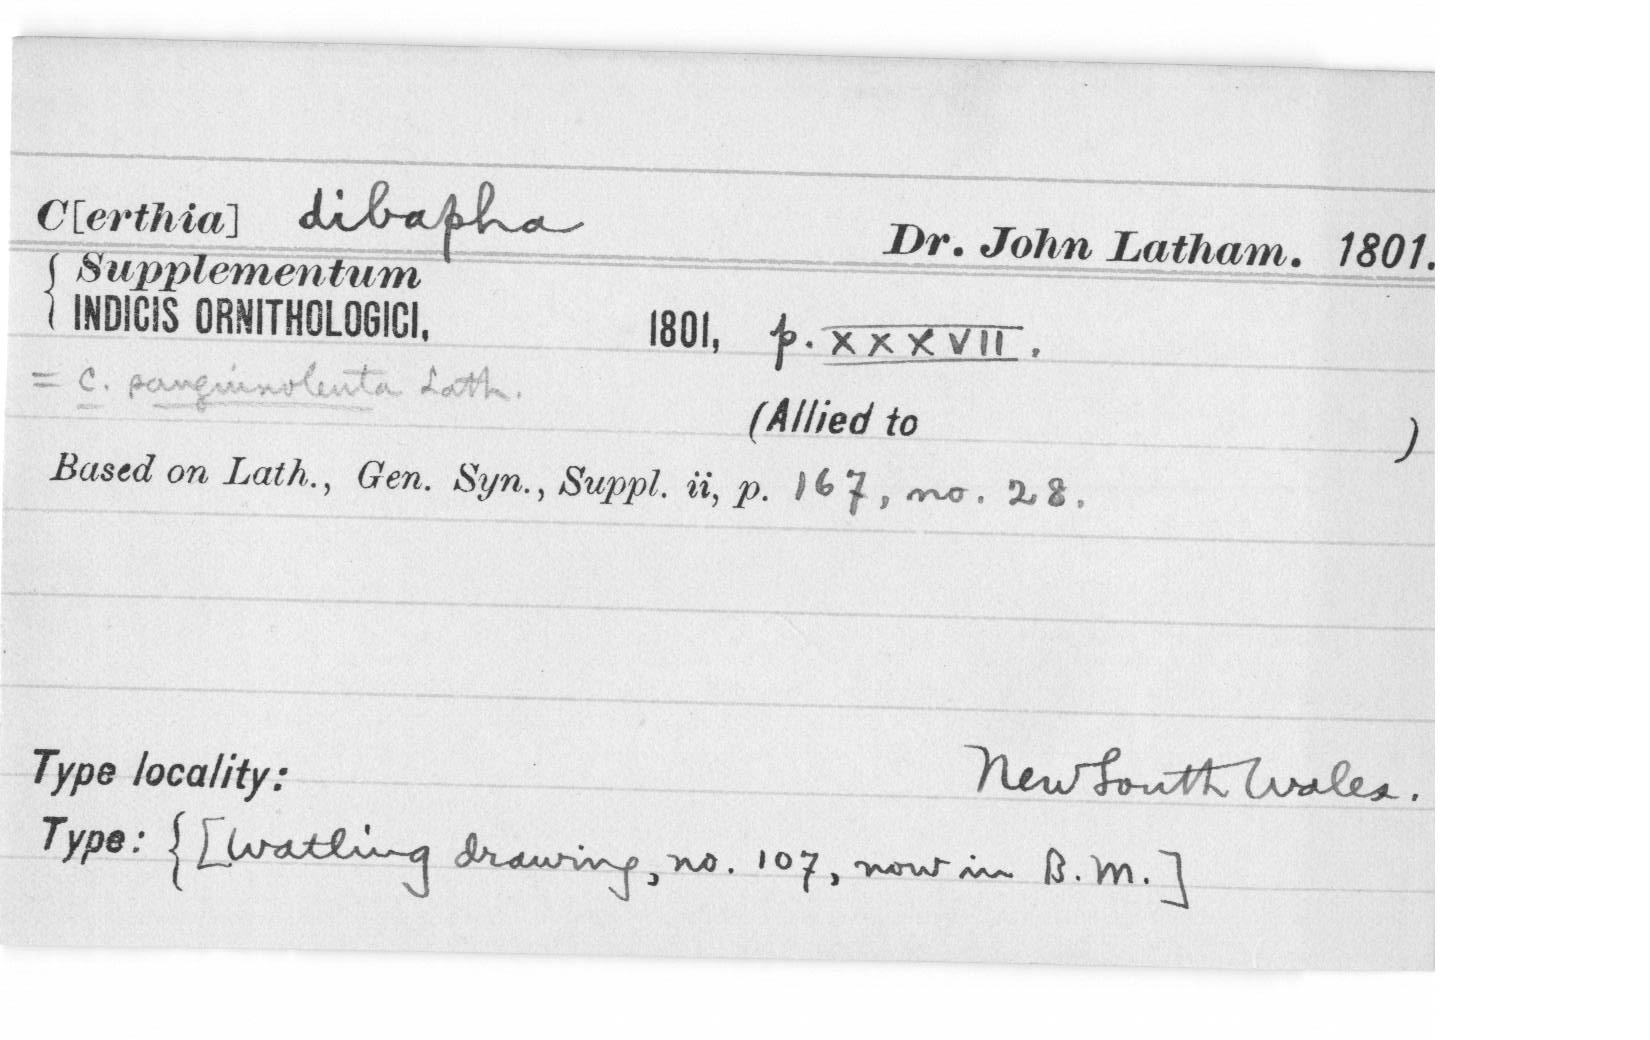 C[erthia] dibapha
Dr. John Latham. 1801.
Supplementum
INDICIS ORNITHOLOGICI, 1801, p. XXXVII.
= C. sanguinolenta Lath.
(Allied to )
Based on Lath., Gen. Syn., Suppl. ii, p. 167, no. 28.
Type locality: New South Wales.
Type: {[Watling drawing, no. 107, now in B.M.]